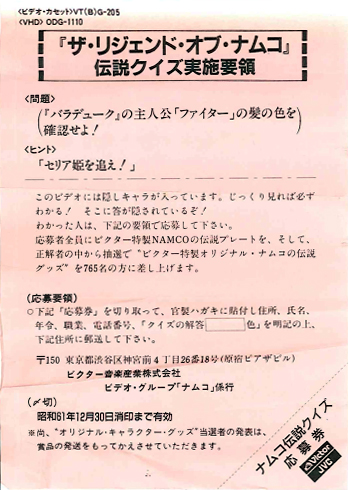 〈ビデオ・カセット〉VT(B)G-205
〈VHD〉ODG-1110
『ザ・リジェンド・オブ・ナムコ』
伝説クイズ実施要領
〈問題〉
(『バラデューク』の主人公「ファイター」の髪の色を
確認せよ!)
〈ヒント〉
「セリア姫を追え!」
このビデオには隠しキャラが入っています。じっくり見れば必ず
わかる! そこに答が隠されているぞ!
わかった人は、下記の要領で応募して下さい。
応募者全員にビクター特製NAMCOの伝説プレートを、そして、
正解者の中から抽選で“ビクター特製オリジナル・ナムコの伝説
グッズ”を765名の方に差し上げます。
(応募要領)
○下記「応募券」を切り取って、官製ハガキに貼付し住所、氏名、
年令、職業、電話番号、「クイズの解答 色」を明記の上、
下記住所に郵送して下さい。
〒150 東京都渋谷区神宮前4丁目26番18号(原宿ピアザビル)
ビクター音楽産業株式会社
ビデオ・グループ「ナムコ」係行
〈〆切〉
昭和61年12月30日消印まで有効
※尚、“オリジナル・キャラクター・グッズ”当選者の発表は、
賞品の発送をもってかえさせていただきます。
ナムコ伝説クイズ
応募券
Victor
JVC